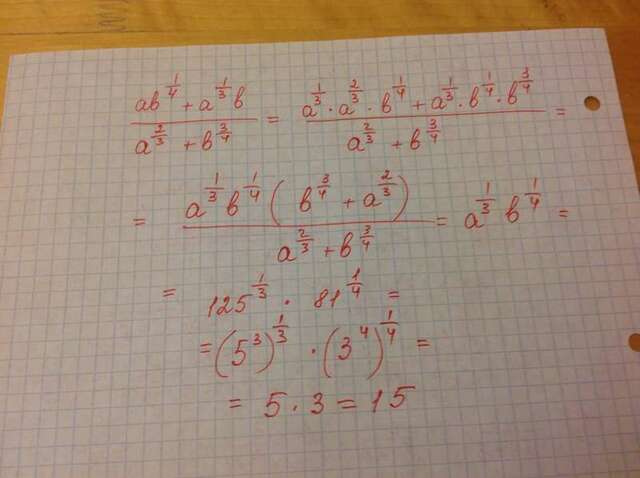 (ab^(1/4) + a^(1/3)b)/(a^(2/3) + b^(3/4)) = (a^(1/3) · a^(2/3) · b^(1/4) + a^(1/3) · b^(1/4) · b^(3/4))/(a^(2/3) + b^(3/4)) =
= (a^(1/3) b^(1/4) (b^(3/4) + a^(2/3)))/(a^(2/3) + b^(3/4)) = a^(1/3) b^(1/4) =
= 125^(1/3) · 81^(1/4) =
= (5^3)^(1/3) · (3^4)^(1/4) =
= 5 · 3 = 15